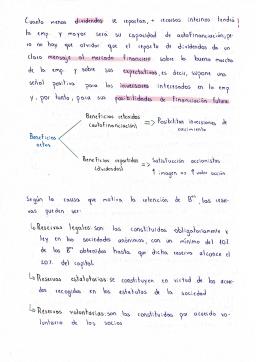 Cuanto menos dividendos se repartan, + recursos internos tendrá
la emp. y mayor será su capacidad de autofinanciación, pe-
ro no hay que olvidar que el reparto de dividendos da un
claro mensaje al mercado financiero sobre la buena marcha
de la emp. y sobre sus expectativas, es decir, supone una
señal positiva para los inversores interesados en la emp
y, por tanto, para sus posibilidades de financiación futura.
Beneficios retenidos
(autofinanciación)
=> Posibilitan inversiones de
crecimiento
Beneficios
netos
Beneficios repartidos
(dividendos)
=> Satisfacción accionistas
↑ imagen no ↑ valor acción
Según la causa que motiva la retención de Bºs las reser-
vas pueden ser:
↳ Reservas legales: son las constituidas obligatoriamente x
ley en las sociedades anónimas, con un mínimo del 10%
de los Bºs obtenidos hasta que dicha reserva alcance el
20% del capital.
↳ Reservas estatutarias: se constituyen en virtud de los acuer-
dos recogidos en los estatutos de la sociedad
↳ Reservas voluntarias: son las constituidas por acuerdo vo-
luntario de los socios